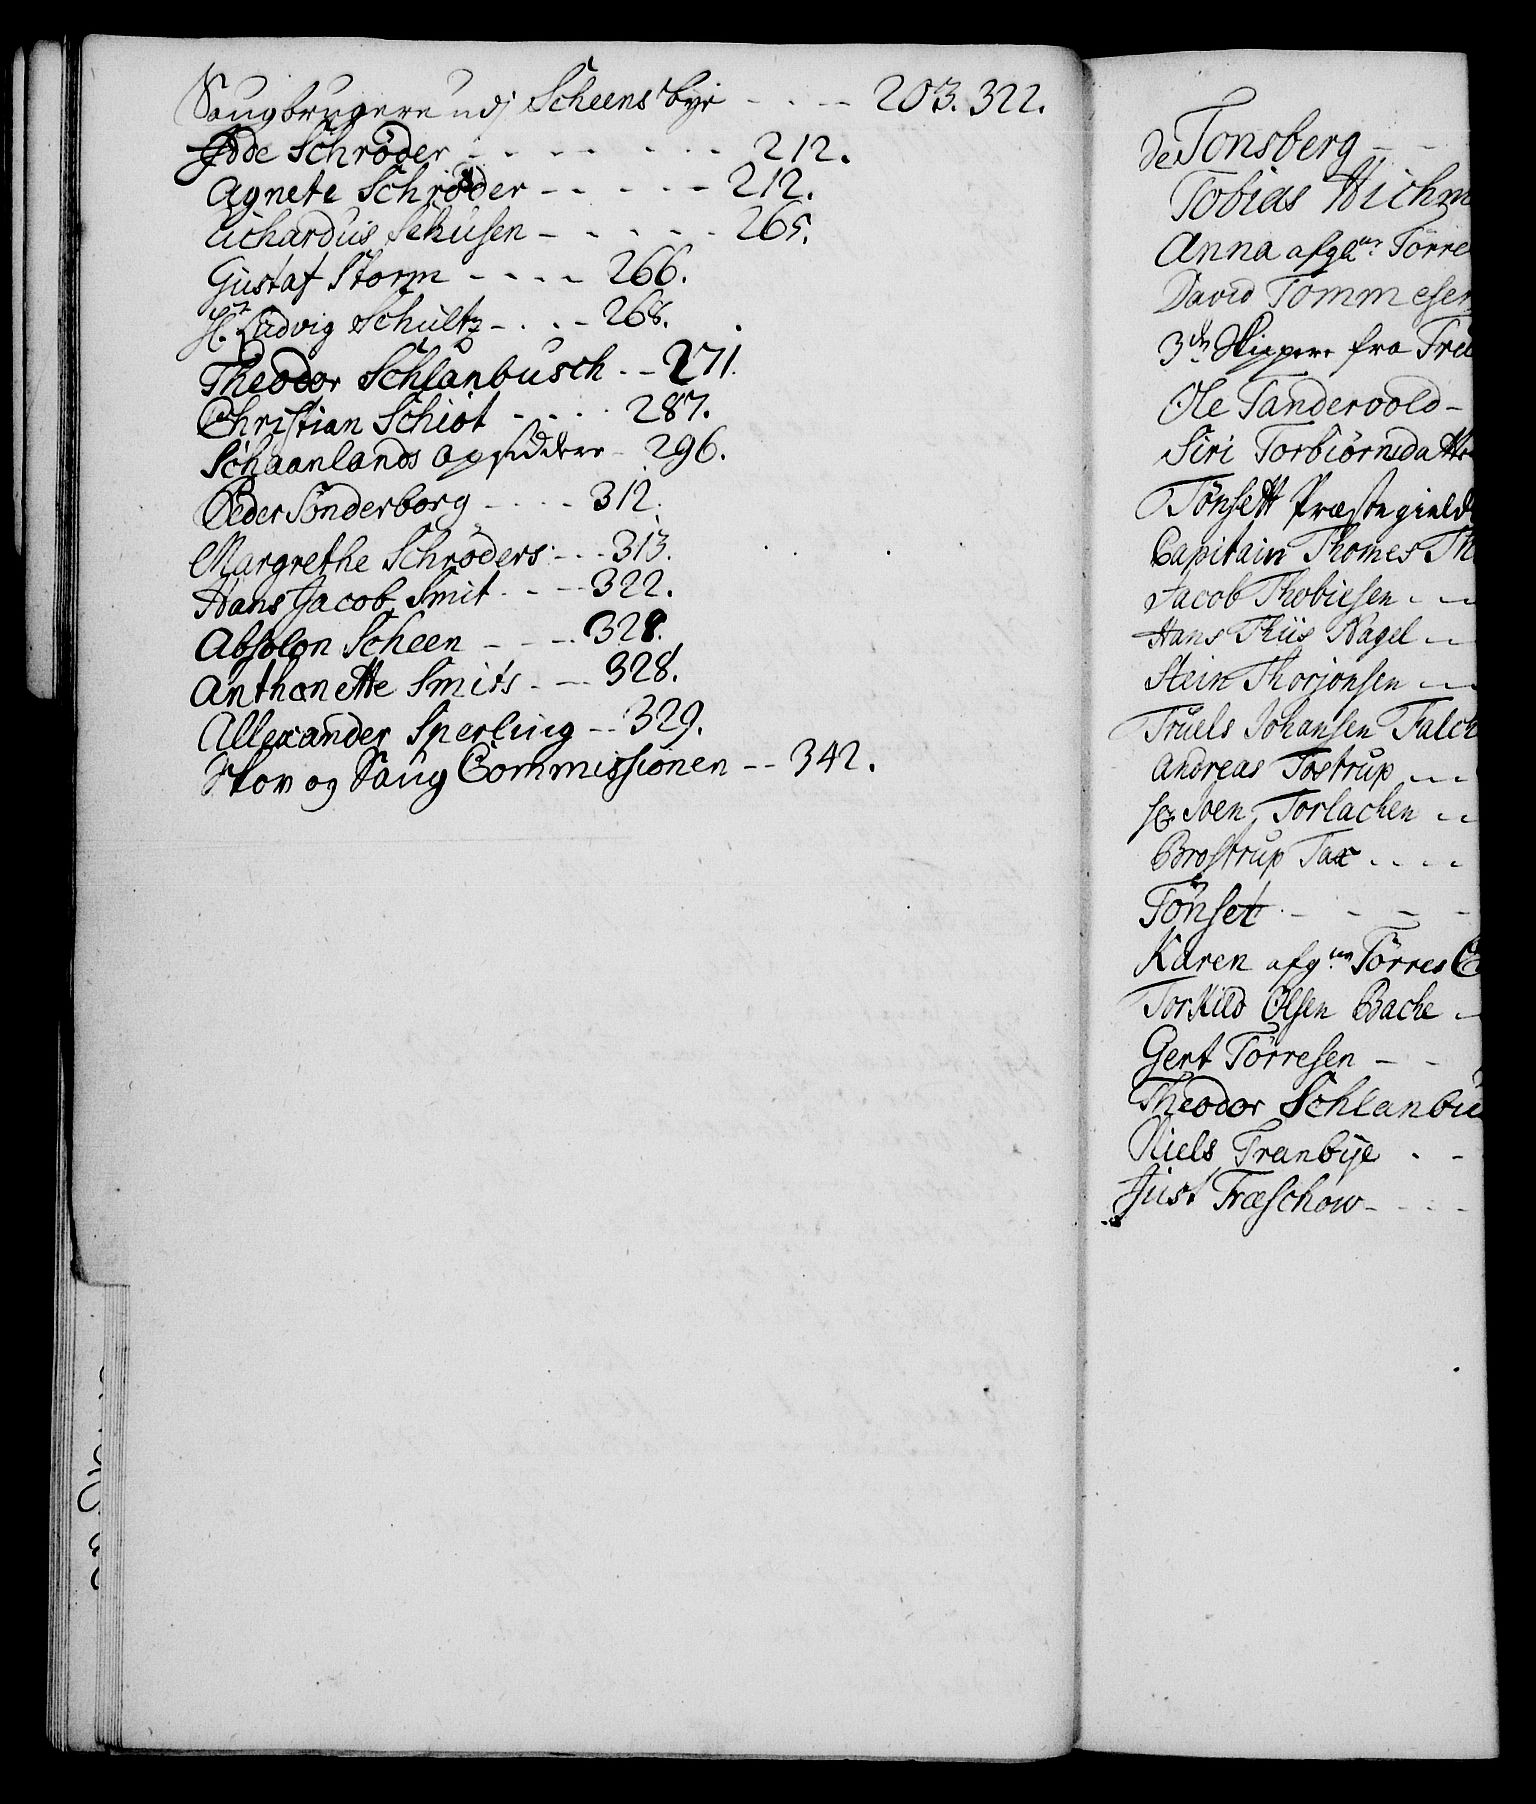 Saugbrugere udj Scheens bye - . . - 203. 322.
Odde Schrøder - - - - - - - 212.
Agnete Schrøder - - - - - 212.
Richardus Schusen - - - - - 265.
Gustaf Storm - - - - 266.
Hr. Ludvig Schultz - . . - 268.
Theodor Schlanbusch . - 271.
Christian Schiøt - - - - 287.
Schaanlands Opsiddere - 296.
Peder Sønderborg - - - - 312.
Margrethe Schrøders - . . - 313.
Hans Jacob Smit . - - - 322.
Absolon Scheen - - - . 328.
Anthonette Smits . - - 328.
Allexander Sperling - - 329.
Skov og Saug Commissionen - - 342.
de Tonsberg - -
Tobias Wichm
Anna afgl. Törre
David Tommesen
3de Skippere fra
Ole Tandervold -
Siri Torbiörnsdatter
Tönsett Præstegield
Capitain Thomes Th
Jacob Thobiesen - - -
Hans Thiis Nagel - -
Stein Thorjonsen - - -
Truels Johansen Falch
Andreas Tostrup - - -
Hr. Iven Torlachen - -
Brostrup Tax . . . -
Tönset - - - -
Karen afg. Törres
Torkild Olsen Bache -
Gert Törresen - -
Theodor Schlanbu
Niels Tranbye . -
Just Træschow - - - -